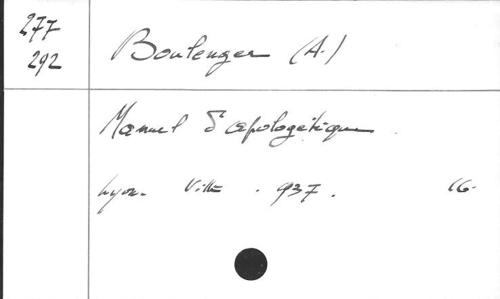 277
292
Boulenger (A.)
Manuel d'apologétique.
Lyon. Vitte. 937. 16.